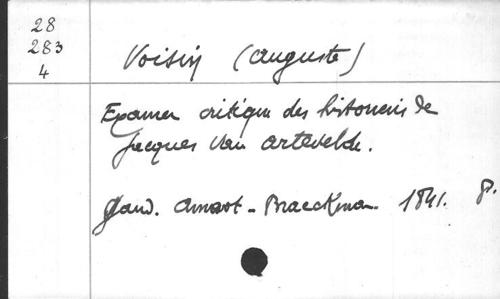 28
283
4
Voisin (Auguste)
Examen critique des historiens de
Jacques Van Artevelde.
Gand. Annoot-Braeckman. 1841. 8°.